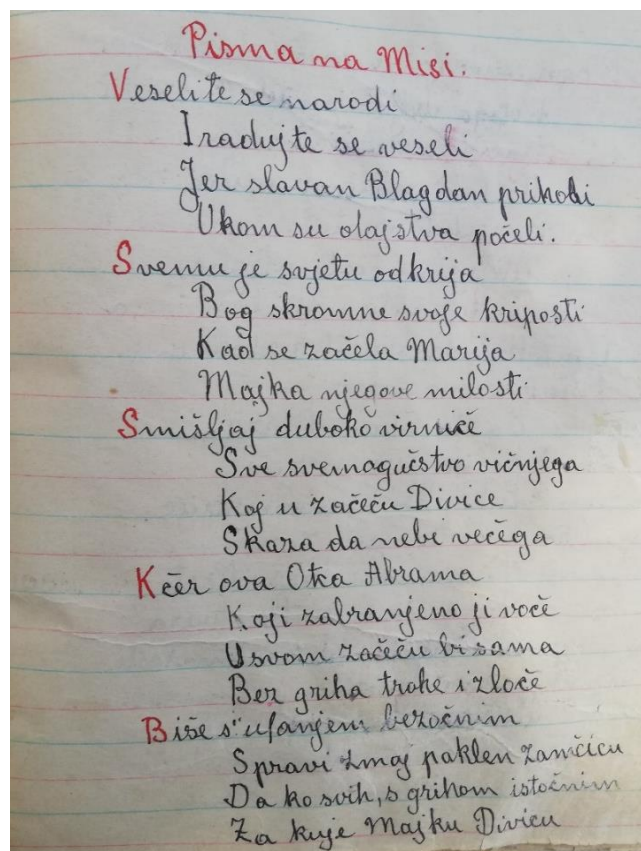 Pisma na Misi.
Veselite se narodi
I radujte se veseli
Jer slavan Blagdan prihodi
Ukom su olajstva počeli.
Svemu je svjetu odkrija
Bog skromne svoje kriposti
Kad se začela Marija
Majka njegove milosti
Smišljaj duboko virniče
Sve svemogučstvo vičnjega
Koj u začeču Divice
Skaza da nebi večega
Kčer ova Otca Abrama
Koji zabranjeno ji voče
U svom začeču bi sama
Bez griha trohe i zloče
Biše s" ufanjem bezočnim
Spravi zmaj paklen zamčicu
Da ko svih, s grihom istočnim
Za kuje Majku Divicu